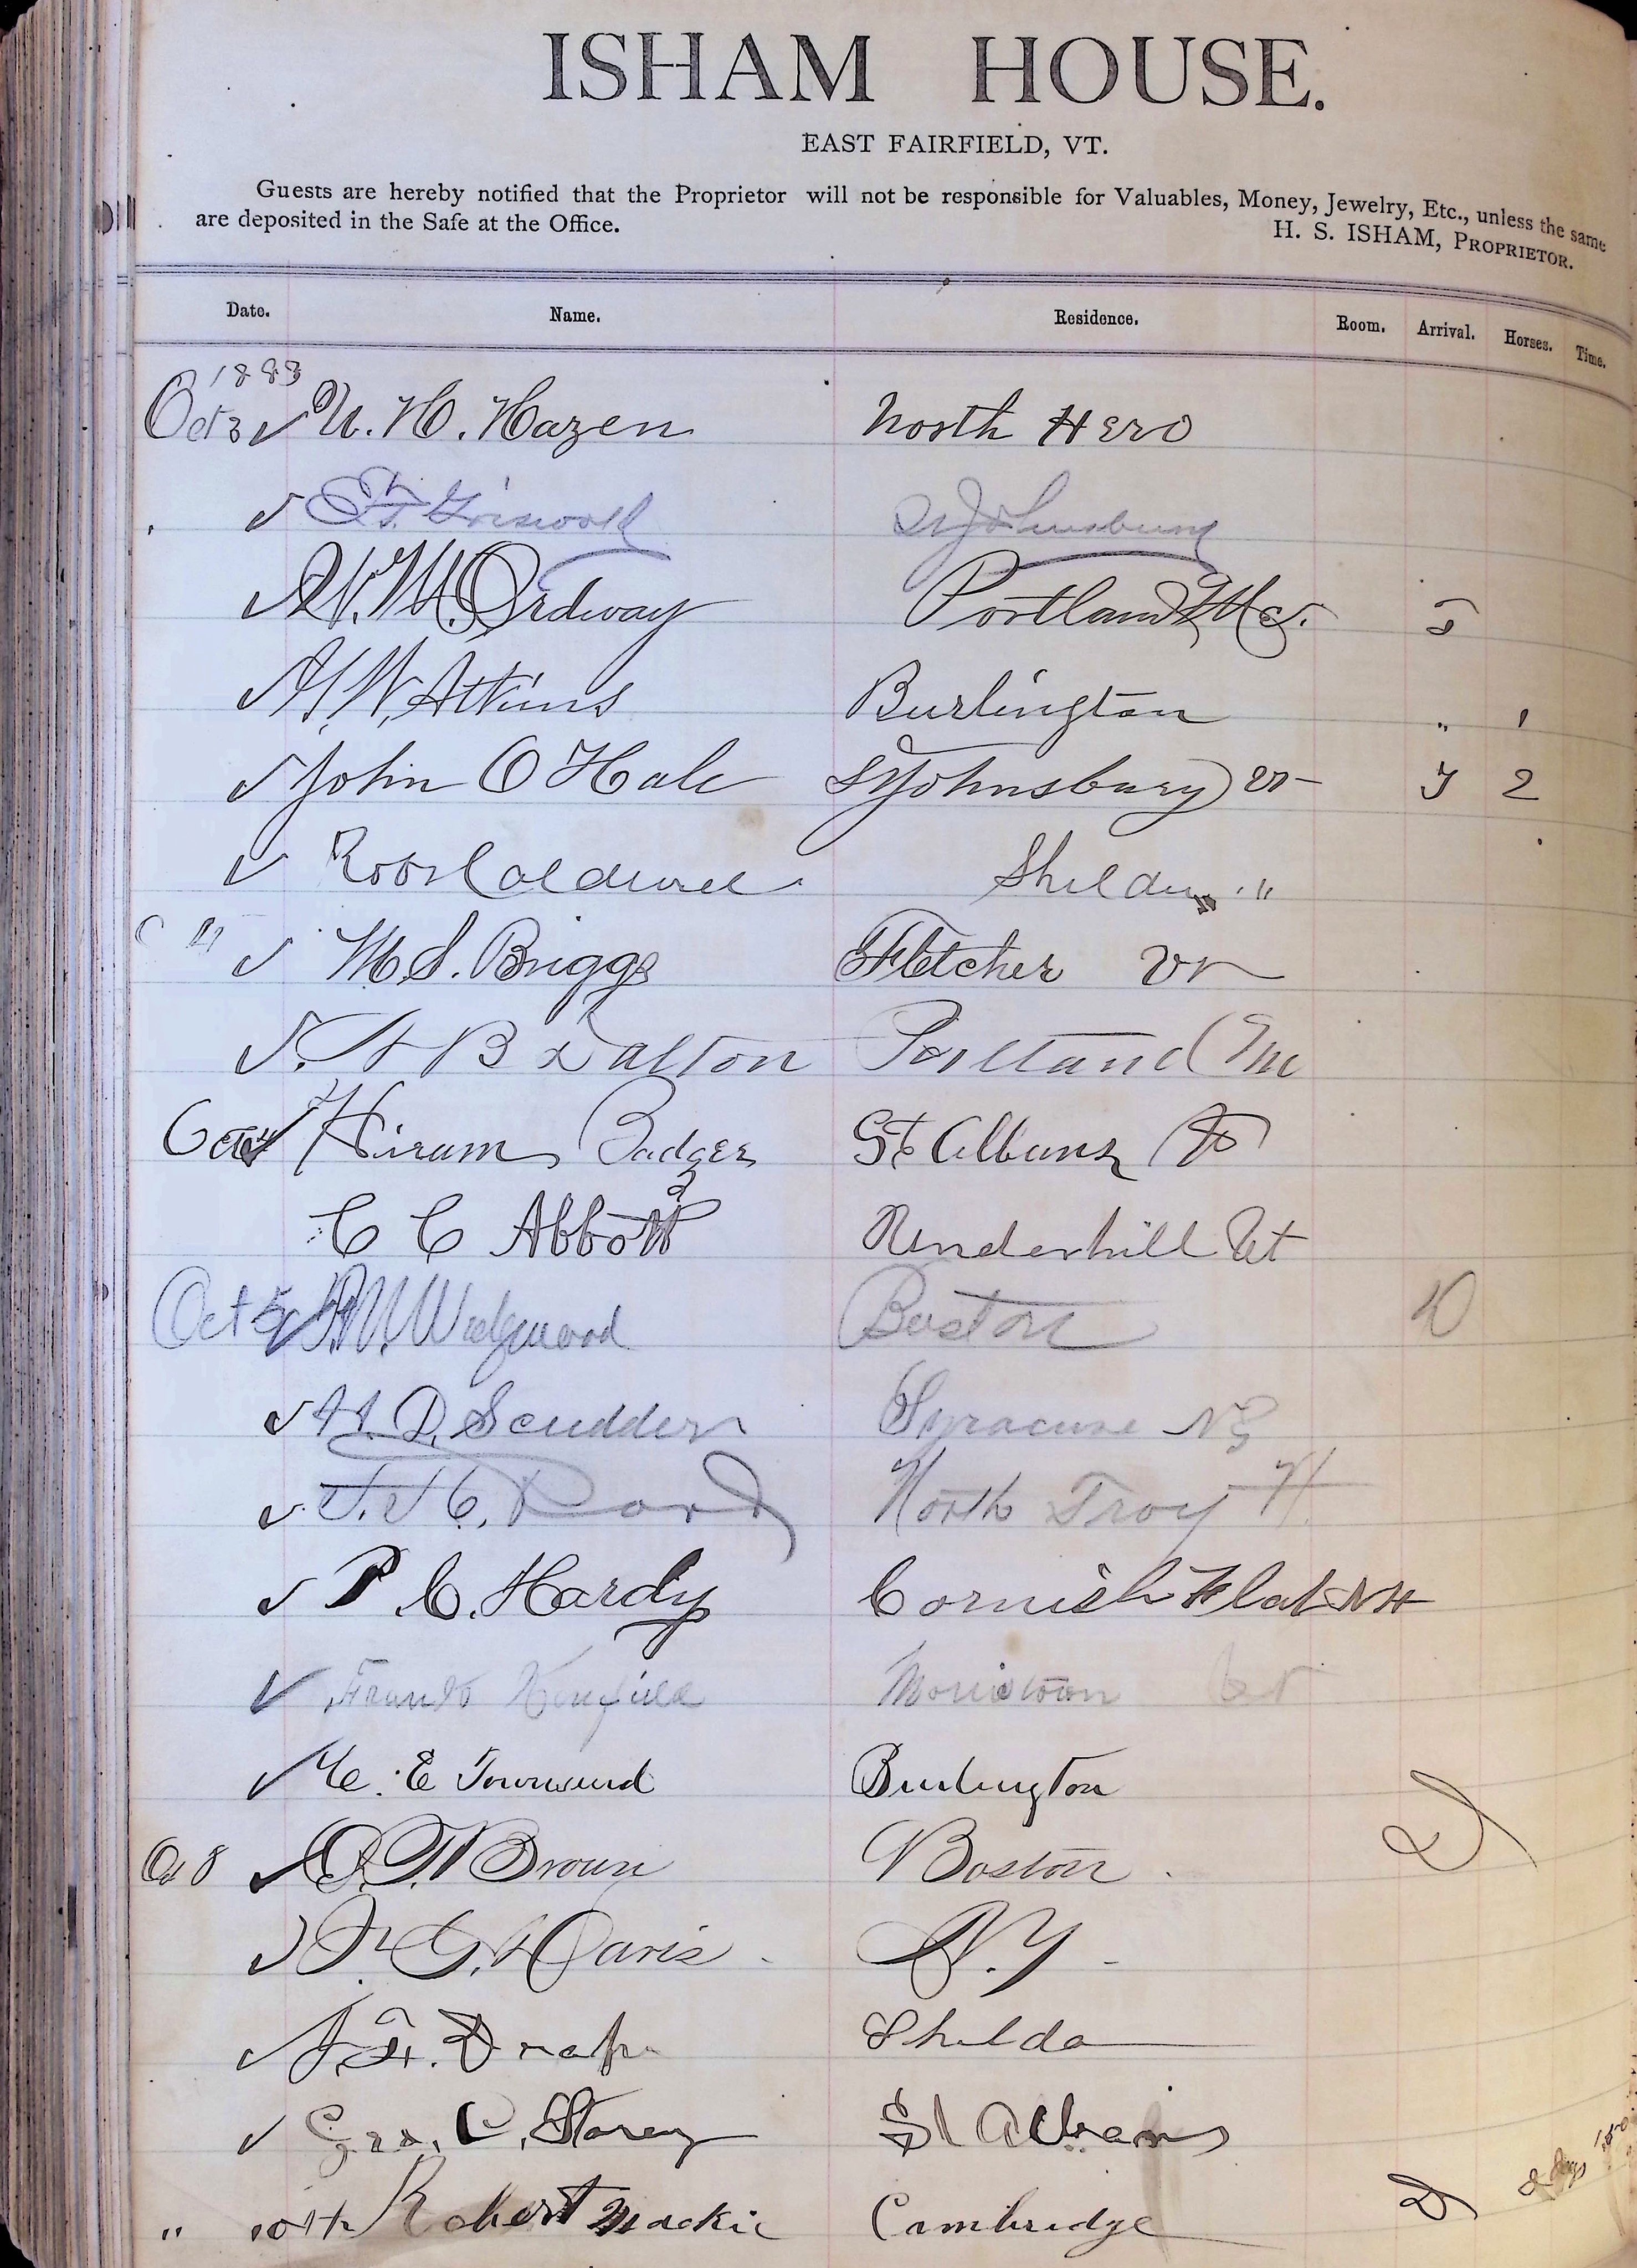 ISHAM HOUSE.
EAST FAIRFIELD, VT.
Guests are hereby notified that the Proprietor will not be responsible for Valuables, Money, Jewelry, Etc., unless the same
are deposited in the Safe at the Office.
H. S. ISHAM, PROPRIETOR.
Date. Name. Residence. Room. Arrival. Horses. Time.
1883
Oct 3 ✓ U. H. Hazen North Hero
✓ Griswold St Johnsbury
✓ Ordway Portland Me.
✓ Atkins Burlington " 1
✓ John O Hale St Johnsbury Vt 2
✓ Robt Caldwell Sheldon "
" 4 ✓ M. S. Briggs Fletcher Vt
✓ B Dalton Portland Me
Oct 4 ✓ Hiram Badger St Albans Vt
C C Abbott Underhill Vt
Oct 5 ✓ Wedgwood Boston D
✓ H. D. Scudder Syracuse NY
✓ North Troy Vt.
✓ P. C. Hardy Cornish Flat NH
✓ Frank Kenfield Morristown Vt
✓ E Townsend Burlington
Oct 8 ✓ Brown Boston
✓ G. Davis N. Y
✓ F. Draper Sheldon
✓ Geo. C. Storey St Albans
" 10th Robert Mackie Cambridge D 2 days